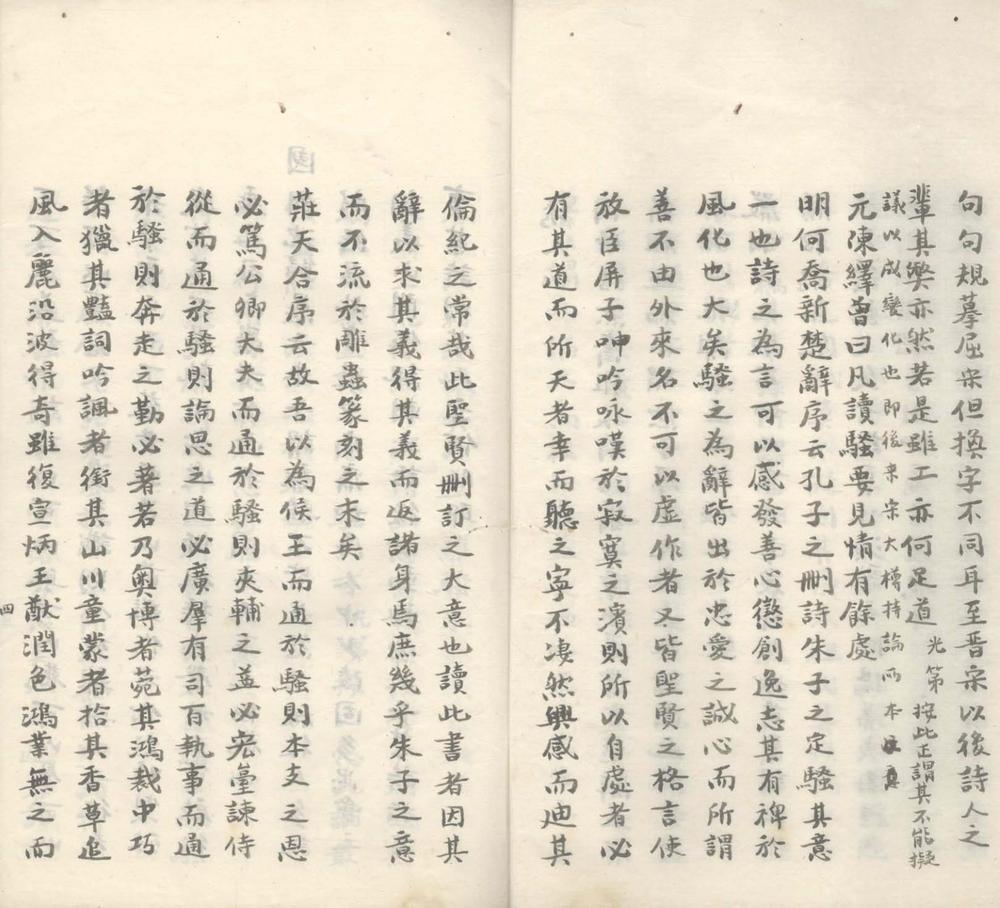 句句規摹屈宋但換字不同耳至晋宋以後詩人之
輩其獘亦然若是雖工亦何足道
光第按此正謂其不能擬
議以成變化也即後来宋大樽持論所本
元陳繹曽曰凡讀騷要見情有餘處
明何喬新楚辭序云孔子之刪詩朱子之定騷其意
一也詩之為言可以感發善心懲創逸志其有裨於
風化也大矣騷之為辭皆出於忠愛之誠心而所謂
善不由外來名不可以虚作者又皆聖賢之格言使
放臣屏子呻吟咏嘆於寂寞之濱則所以自處者必
有其道而所天者幸而聽之寧不凄然興感而迪其
倫紀之常哉此聖賢刪訂之大意也讀此書者因其
辭以求其義得其義而返諸身焉庶幾乎朱子之意
而不流於雕蟲篆刻之末矣
莊天合序云故吾以為侯王而通於騷則本支之恩
必篤公卿大夫而通於騷則夾輔之益必宏臺諫侍
從而通於騷則論思之道必廣羣有司百執事而通
於騷則奔走之勤必著若乃奧博者菀其鴻裁中巧
者獵其豔詞吟諷者銜其山川童蒙者拾其香草追
風入麗沿波得奇雖復宣炳王猷潤色鴻業無之而
四